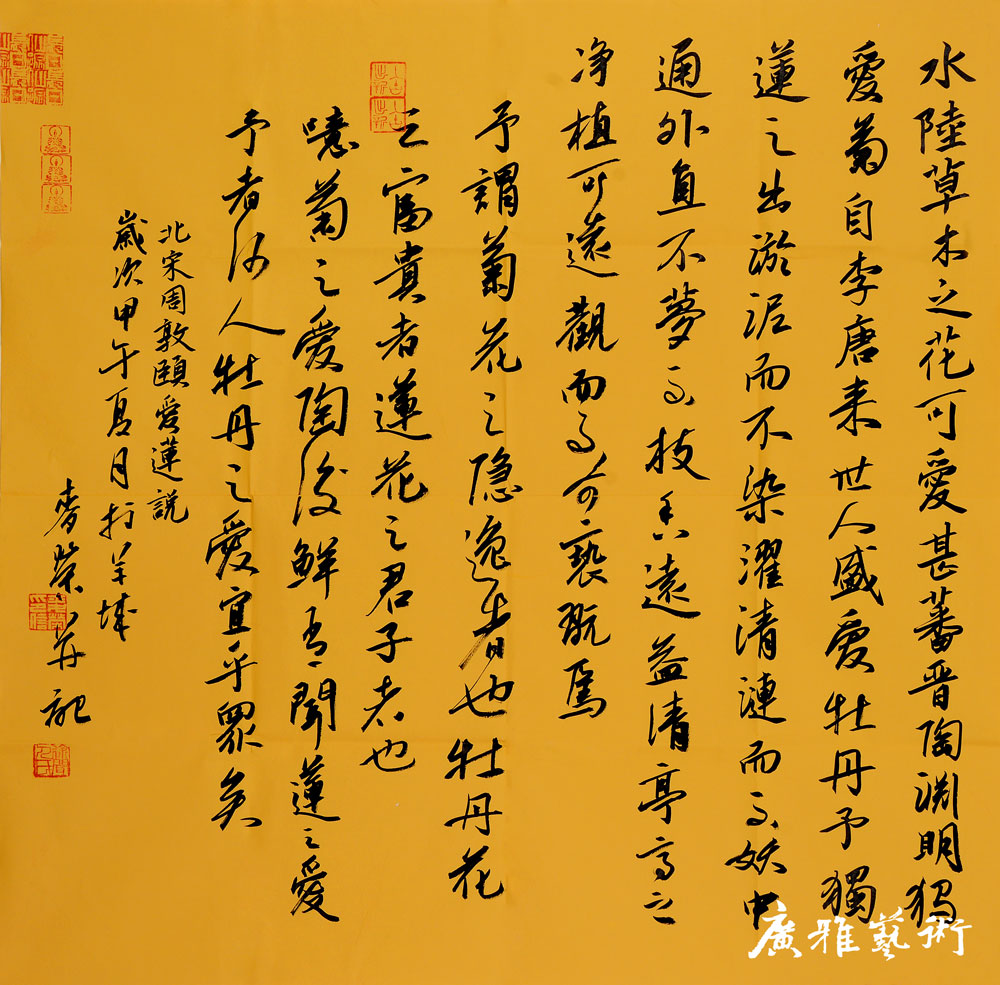 水陸草木之花可愛甚蕃晋陶渊明獨
愛菊自李唐来世人盛愛牡丹予獨
蓮之出淤泥而不染濯清漣而不妖中
通外直不蔓不枝香遠益清亭亭
净植可遠觀而不可褻翫焉
予謂菊花之隐逸者也牡丹花
之富貴者蓮花之君子者也
噫菊之愛陶後鮮有聞蓮之愛
予者何人牡丹之愛宜乎眾矣
北宋周敦頤愛蓮説
歲次甲午夏月於羊城
麥榮并記
廣雅藝術